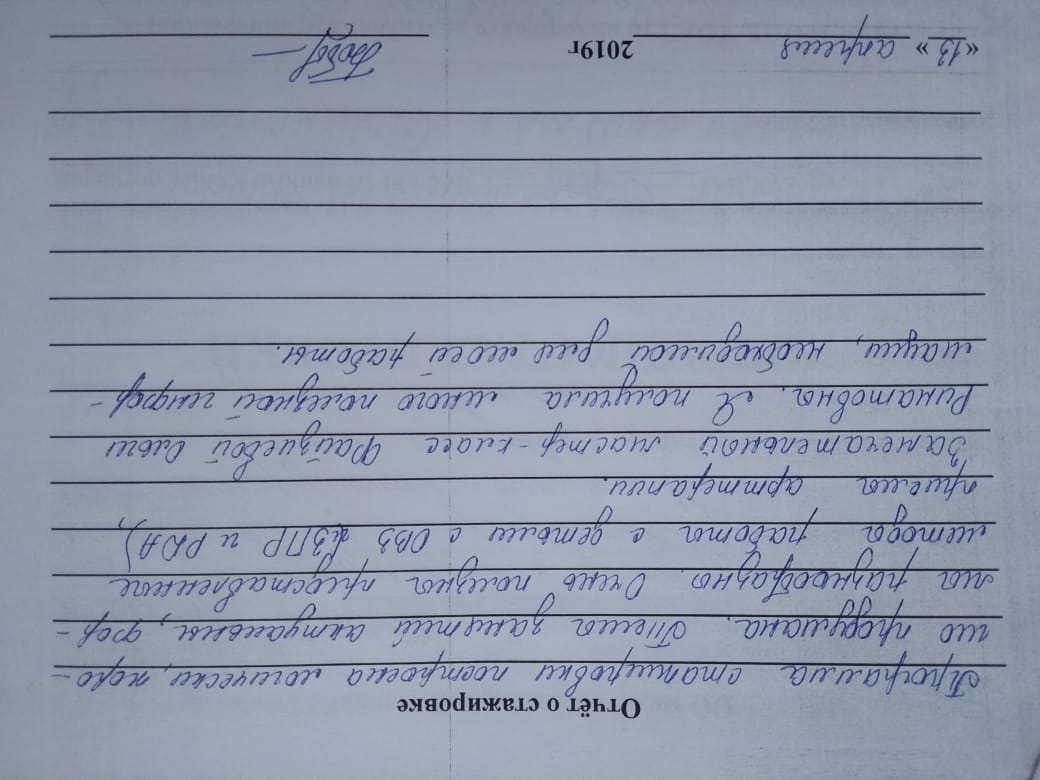 Отчёт о стажировке
Программа стажировки построена логически, хоро-
шо продумана. Темы занятий актуальны, фор-
мы разнообразны. Очень полезны представленные
методы работы с детьми с ОВЗ (ЗПР и РДА),
приемы арттерапии.
Замечательный мастер-класс Файзиевой Ольги
Ринатовны. Я получила много полезной инфор-
мации, необходимой для моей работы.
«13» апреля 2019г